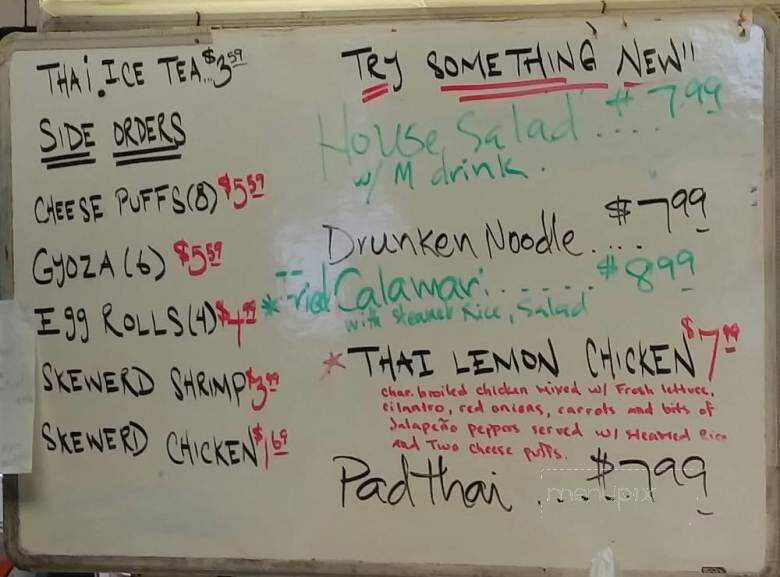 THAI.ICE TEA...$3.59
SIDE ORDERS
CHEESE PUFFS(8) $5.59
GYOZA(6) $5.59
Egg ROLLS(4) $4.99
SKEWERD SHRIMP $3.99
SKEWERD CHICKEN $1.69
TRY SOMETHING NEW!!
House Salad .... $7.99
w/ M drink.
Drunken Noodle..... $7.99
*Fried Calamari....... $8.99
with steamed Rice, Salad
* THAI LEMON CHICKEN $7.99
char.broiled chicken mixed w/ Fresh lettuce,
cilantro, red onions, carrots and bits of
Jalapeño peppers served w/ steamed Rice
and Two cheese puffs.
Pad thai ..... $7.99
menupix